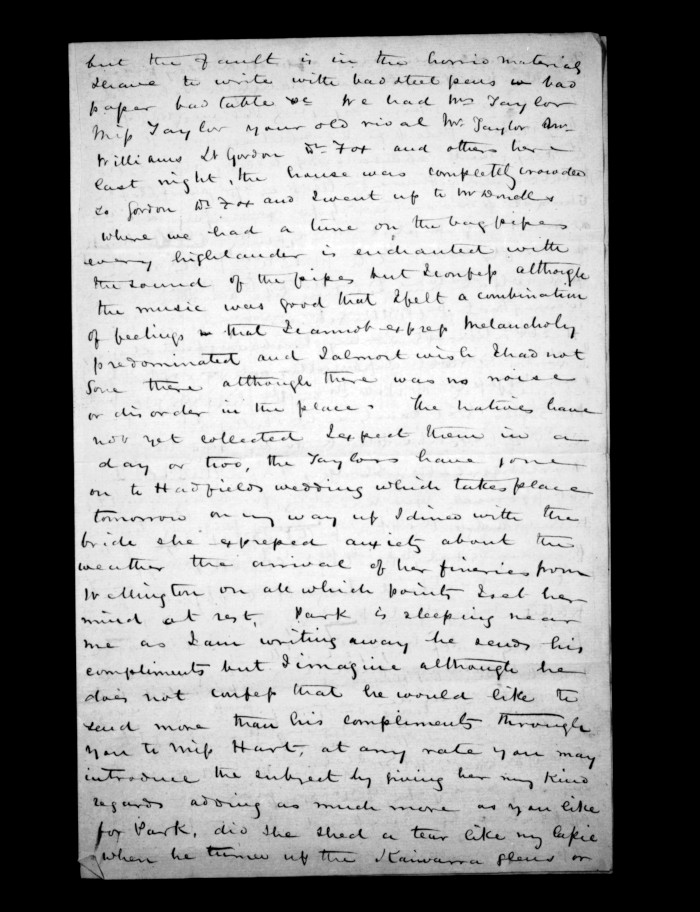 but the fault is in the horrid materials
I have to write with bad steel pens bad
paper bad table &c We had Mrs Taylor
Miss Taylor your old rival Mr Taylor Mr
Williams Lt Gordon Dr Fox and others here
last night, the house was completely crowded
Lt Gordon Dr Fox and I went up to McDonells
where we had a tune on the bagpipes
every highlander is enchanted with
the sound of the pipes but I confess although
the music was good that I felt a combination
of feelings that I cannot express Melancholy
predominated and I almost wish I had not
gone there although there was no noise
or disorder in the place. The natives have
not yet collected I expect them in a
day or two, the Taylors have gone
on to Hadfields wedding which takes place
tomorrow on my way up I dined with the
bride she expressed anxiety about the
weather the arrival of her fineries from
Wellington on all which points I set her
mind at rest, Park is sleeping near
me as I am writing away he sends his
compliments but I imagine although he
does not confess that he would like to
send more than his compliments through
you to Miss Hart, at any rate you may
introduce the subject by giving her my kind
regards adding as much more as you like
for Park, did she shed a tear like my
when he turned up the Kaiwarra glens or